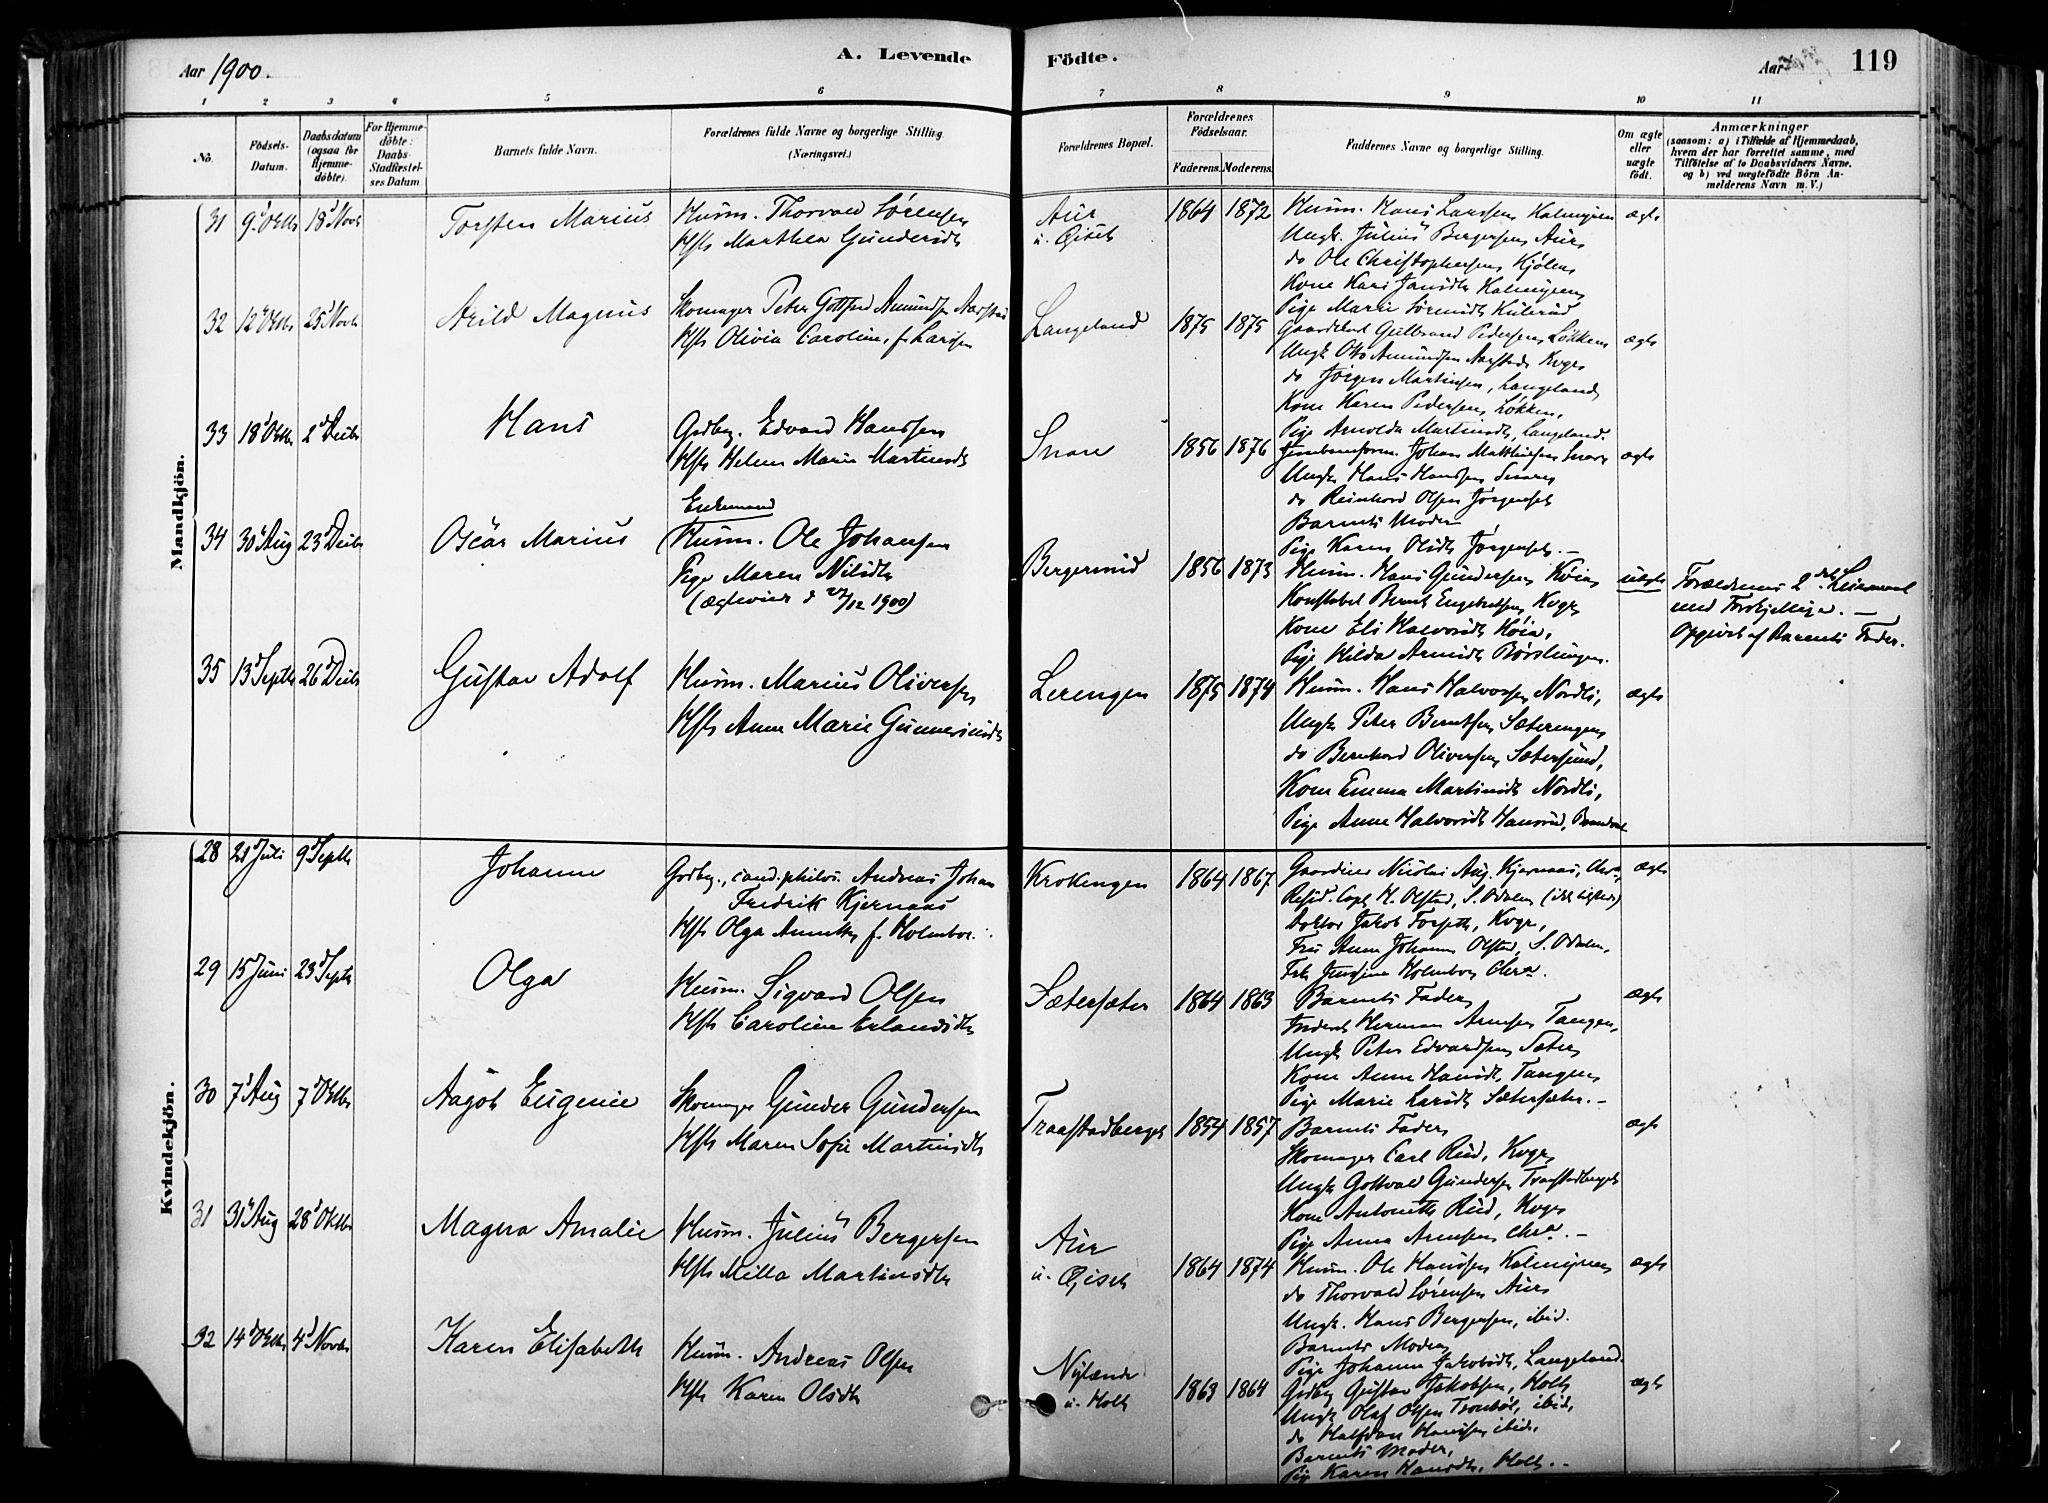 Aar 1900.
A. Levende
Födte.
Aar
119
1 2 3 4 5 6 7 8 9 10 11
No.
Födsels-Datum.
Daabsdatum (ogsaa for Hjemmedöbte).
For Hjemmedöbte: Daabs-Stadfæstelses Datum
Barnets fulde Navn.
Forældrenes fulde Navne og borgerlige Stilling. (Næringsvei.)
Forældrenes Bopæl.
Forældrenes Födselsaar.
Faderens. Moderens.
Faddernes Navne og borgerlige Stilling.
Om ægte eller uægte födt.
Anmærkninger
(saasom: a) i Tilfælde af Hjemmedaab,
hvem der har forrettet samme, med
Tilföielse af to Daabsvidners Navne.
og b) ved uægtefödte Börn An-
melderens Navn m. V.)
Mandkjön.
31 9 Oktb 18 Novb Torsten Marius
Husm. Thorvald Sörensen
Hst Marthea Gundersdt
Aur u. Gisel 1864 1872
Husm. Hans Larssen Kalmyren
Ungk. Julius Bergersen Aur,
do Ole Christophersen Kjölen,
Kone Kari Jansdt Kalmyren,
Pige Marie Sörensdt Kulerud
ægte
32 12 Oktb 25 Novb Arild Magnus
Skomager Peter Gottfred Amundsen Aarstad
Hst Olivia Caroline, f. Larsen
Langeland 1875 1875
Gulbrand Pedersen Løkken,
Ungk Otto Amundsen Aarstad Kvgr
do Jörgen Martinsen, Langeland,
Kone Karen Pedersen, Løkken,
Pige Arnolda Martinsdt, Langeland.
ægte
33 18 Oktb 2 Decbr Hans
Gdbrg. Edvard Hanssen
Hst Helene Marie Martinsdt
Snare 1856 1876
Johan Matthisen Snare
Ungk Hans Hanssen Snare,
do Reinhard Olsen Jörgenset
Barnets Moder
Pige Karen Olsdt Jörgenset. –
ægte
34 30 Aug 23 Decb Oscar Marius
Enkemand
Husm. Ole Johansen
Pige Maren Nilsdt
(ægteviet d 27/12 1900)
Bergermid 1856 1873
Husm. Hans Gundersen Köia,
Konstabel Bernt Engebretsen, Kvgr,
Kone Eli Halvorsdt Köia,
Pige Hilda Arnesdt Börslungen.
uægte
Forældrenes 2det Leiermaal
med Forskjellige. –
Opgivet af Barnets Fader.
35 13 Septb 26 Decb Gustav Adolf
Husm. Marius Oliversen
Hst Anne Marie Gunnersdt
Lerengen 1875 1874
Husm. Hans Halvorsen Nordli,
Ungk Peter Berntsen Sæterengen
do Bernhard Oliversen Sætersund,
Kone Emma Martinsdt Nordli,
Pige Anne Halvorsdt Hansrud,
ægte
Kvindekjön.
28 21 Juli 9 Septb Johanne
Gdbrg., cand. philos. Andreas Johan
Fredrik Kjernaas
Hst Olga Annette f. Holmboe.
Krokengen 1864 1867
Gaardeier Nicolai Aug. Kjernaas, Chra,
Resid. Capl. H. Olstad, S. Odalen (ikke tilstede)
Doktor Jakob Forseth, Kvgr,
Fru Anne Johanne Olstad, S. Odalen,
Frk Jensine Holmboe Chra.
ægte
29 15 Juni 23 Septb Olga
Husm. Sigvard Olsen
Hst Caroline Erlandsdt
Sætersæter 1864 1863
Barnets Fader,
Inderst Herman Arnesen Tangen,
Ungk Peter Edvardsen Sæter,
Kone Anne Hansdt, Tangen,
Pige Marie Larsdt Sætersæter. –
ægte
30 7 Aug 7 Oktb Aagot Eugenie
Skomager Gunder Gundersen
Hst Maren Sofie Martinsdt
Traastadberget 1854 1857
Barnets Fader,
Skomager Carl Rud, Kvgr,
Ungk Gottvald Gundersen Traastadberget
Kone Antonette Rud, Kvgr
Pige Anna Arnesen Chra. –
ægte
31 31 Aug 28 Oktb Magna Amalie
Husm. Julius Bergersen
Hst Milla Martinsdt
Aur u. Gisel 1864 1874
Husm. Ole Hansen Kalmyren,
do Thorvald Sörensen Aur,
Ungk. Hans Bergersen, ibid.
Barnets Moder,
Pige Johanne Jakobsdt, Langeland.
ægte
32 14 Oktb 4 Novb Karen Elisabeth
Husm. Andreas Olsen
Hst Karen Olsdt
Nylænde u. Holt 1863 1864
Gdbrg Gustav Jakobsen, Holt,
Ungk Olaf Olsen Tronböl, ibid,
do Halfdan Hansen ibid,
Barnets Moder,
Pige Karen Hansdt, Holt. –
ægte